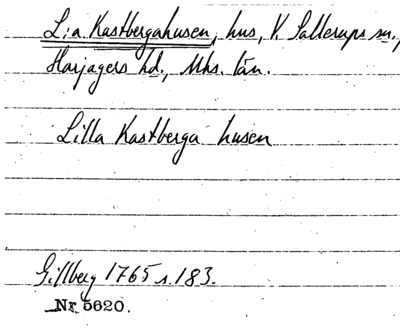 L:a Kastbergahusen, hus, V. Sallerups sn.,
Harjagers hd., Mhs. län.
Lilla Kastberga husen
Gillberg 1765 s. 183.
Nr. 5620.